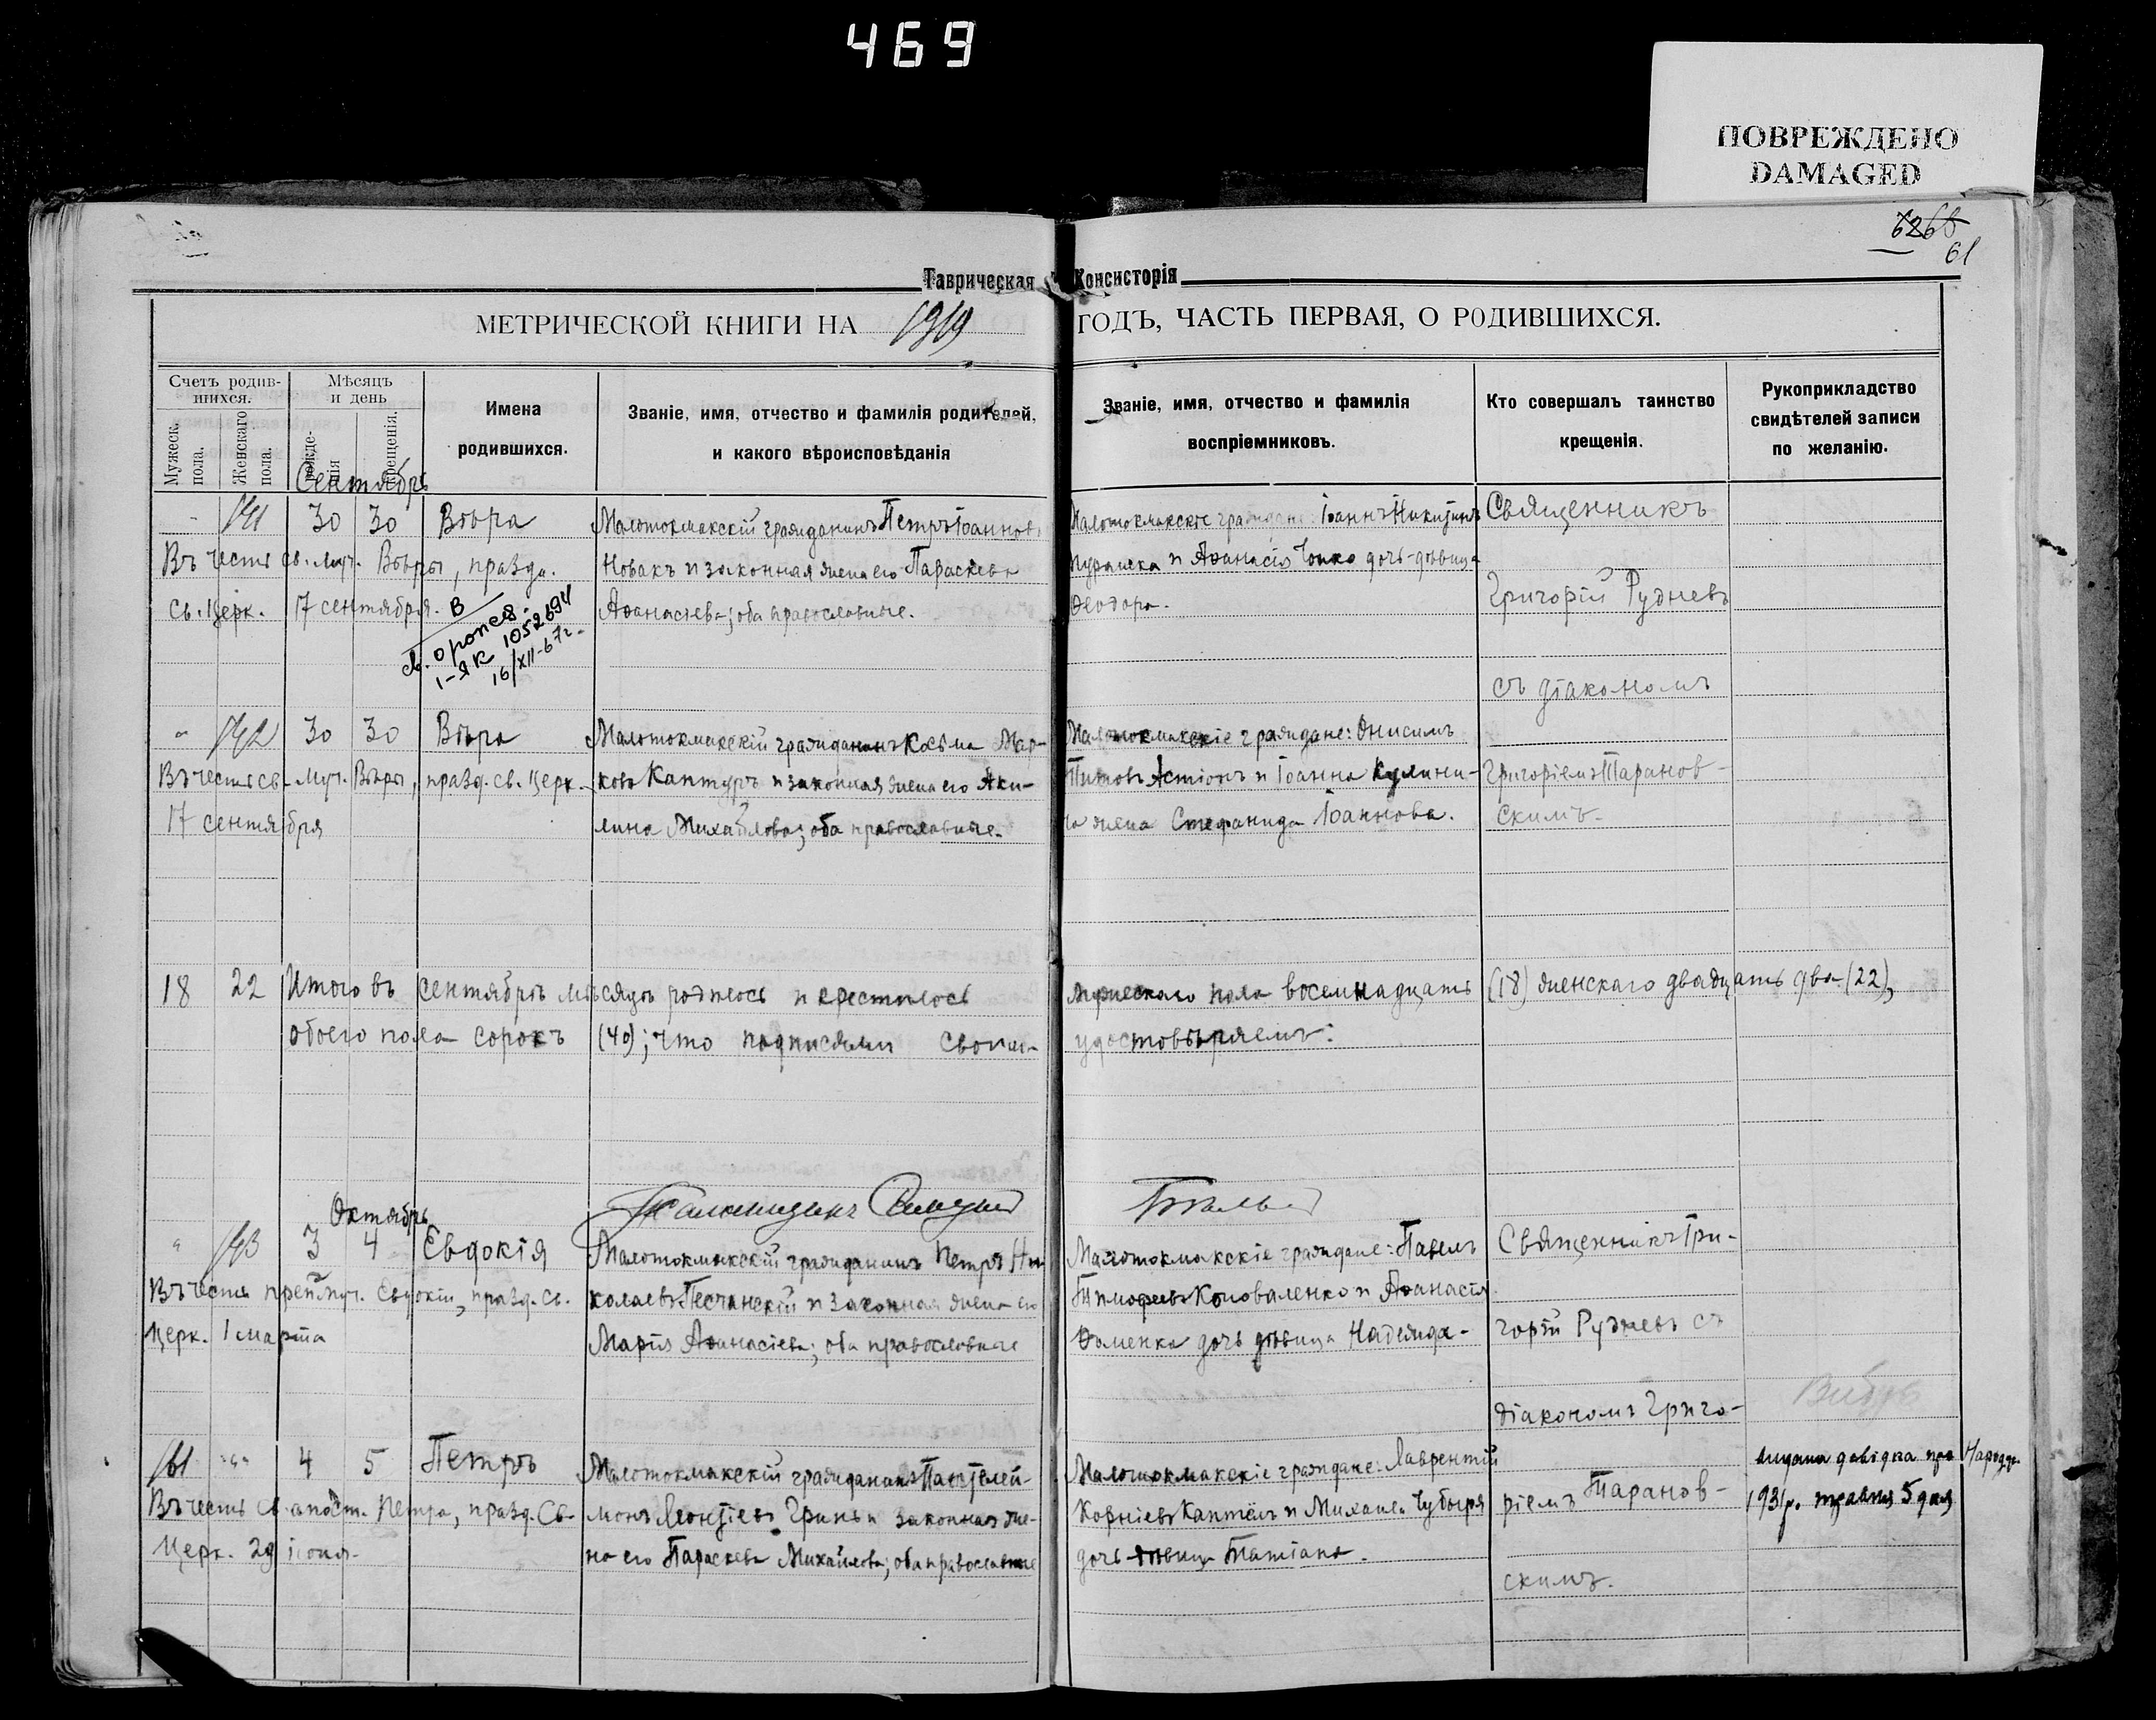 469
ПОВРЕЖДЕНО
DAMAGED
61
Таврическая Консисторія
МЕТРИЧЕСКОЙ КНИГИ НА 1919 ГОДЪ, ЧАСТЬ ПЕРВАЯ, О РОДИВШИХСЯ.
Счетъ родив-
шихся.
Мужеск. пола.
Женскаго пола.
Мѣсяцъ
и день
рожде-
нія
крещенія.
Имена
родившихся.
Званіе, имя, отчество и фамилія родителей,
и какого вѣроисповѣданія
Званіе, имя, отчество и фамилія
воспріемниковъ.
Кто совершалъ таинство
крещенія.
Рукоприкладство
свидѣтелей записи
по желанію.
Сентябрь
141 30 30 Вѣра
Въ честь св. муч. Вѣры, праздн.
св. Церк. 17 сентября.
I-ЯК 1052694
16/XII-67г.
Малотокмакскій гражданинъ Петръ Іоанновъ
Новакъ и законная жена его Параскева
Аѳанасіева; оба православные.
Малотокмакскіе граждане: Іоаннъ Никитинъ
и Аѳанасія дочь-дѣвица
Ѳеодора.
Священникъ
Григорій Рудневъ
съ діакономъ
Григоріемъ Таранов-
скимъ.
" 142 30 30 Вѣра
Въ честь св. муч. Вѣры, празд. св. Церк.
17 сентября
Малотокмакскій гражданинъ Косьма Мар-
ковъ Каптуръ и законная жена его Аки-
лина Михайлова; оба православные.
Малотокмакскіе граждане: Онисимъ
Титовъ и Іоанна Кулини-
ча жена Стефанида Іоаннова.
18 22 Итого въ сентябрѣ мѣсяцѣ родилось и крестилось мужескаго пола восемнадцать (18) женскаго двадцать два (22),
обоего пола сорокъ (40); что подписями своими удостовѣряемъ:
Октябрь
" 143 3 4 Евдокія
Въ честь преп. муч. Евдокіи, празд. св.
Церк. 1 марта
Малотокмакскій гражданинъ Петръ Ни-
колаевъ Песчанскій и законная жена его
Марія Аѳанасіева; оба православные
Малотокмакскіе граждане: Павелъ
Тимофеевъ Коноваленко и Аѳанасія
Фоменка дочь дѣвица Надежда.
Священникъ Гри-
горій Рудневъ съ
діакономъ Григо-
ріемъ Таранов-
скимъ.
161 " 4 5 Петръ
Въ честь св. апост. Петра, празд. Св.
Церк. 29 іюня.
Малотокмакскій гражданинъ Пантелей-
монъ Леонтіевъ Гринь и законная же-
на его Параскева Михайлова; оба православные
Малотокмакскіе граждане: Лаврентій
Корніевъ и Михаила Чубыря
дочь дѣвица Татіана.
видана довідка про Народж.
1931 р. травня 5 дня